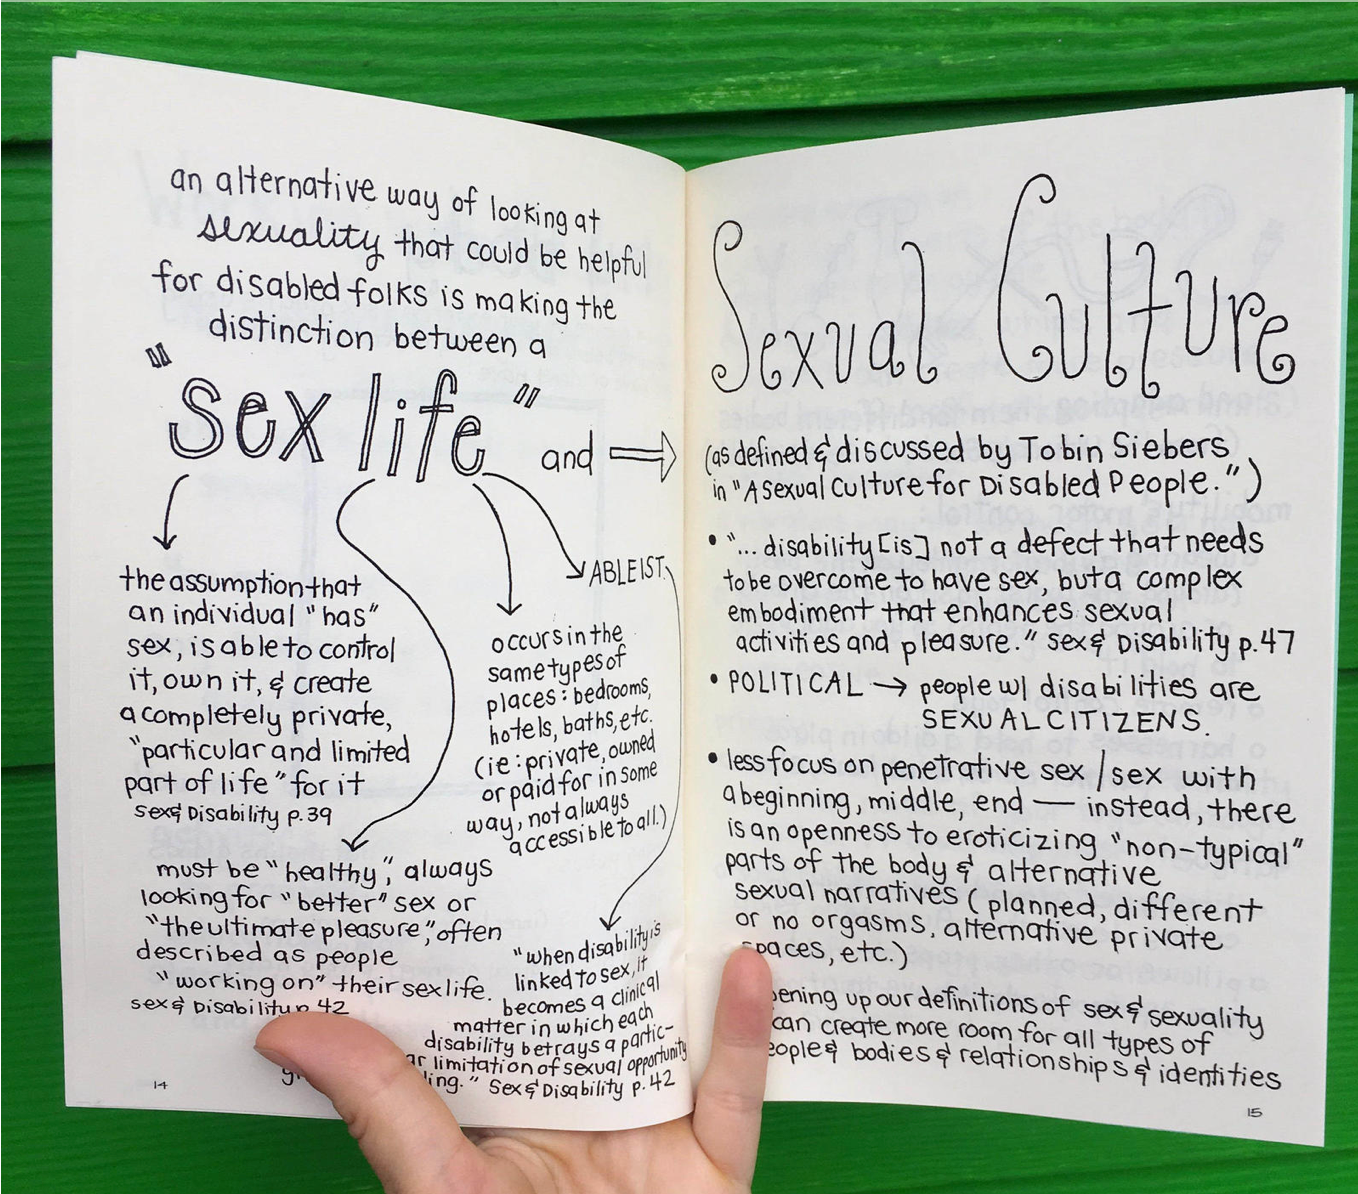 an alternative way of looking at
sexuality that could be helpful
for disabled folks is making the
distinction between a
"sex life" and
the assumption that
an individual "has"
sex, is able to control
it, own it, & create
a completely private,
"particular and limited
part of life" for it
Sex & Disability p.39
must be "healthy", always
looking for "better" sex or
"the ultimate pleasure", often
described as people
"working on" their sex life.
sex & Disability p. 42
occurs in the
same types of
places: bedrooms,
hotels, baths, etc.
(ie: private, owned
or paid for in some
way, not always
accessible to all.)
ABLEIST.
"when disability is
linked to sex, it
becomes a clinical
matter in which each
disability betrays a partic-
limitation of sexual opportunity
." Sex & Disability p.42
14
Sexual Culture
(as defined & discussed by Tobin Siebers
in "A Sexual Culture for Disabled People.")
• "... disability [is] not a defect that needs
to be overcome to have sex, but a complex
embodiment that enhances sexual
activities and pleasure." Sex & Disability p.47
• POLITICAL → people w/ disabilities are
SEXUAL CITIZENS.
• less focus on penetrative sex / sex with
a beginning, middle, end — instead, there
is an openness to eroticizing "non-typical"
parts of the body & alternative
sexual narratives (planned, different
or no orgasms, alternative private
spaces, etc.)
up our definitions of sex & sexuality
can create more room for all types of
& bodies & relationships & identities
15